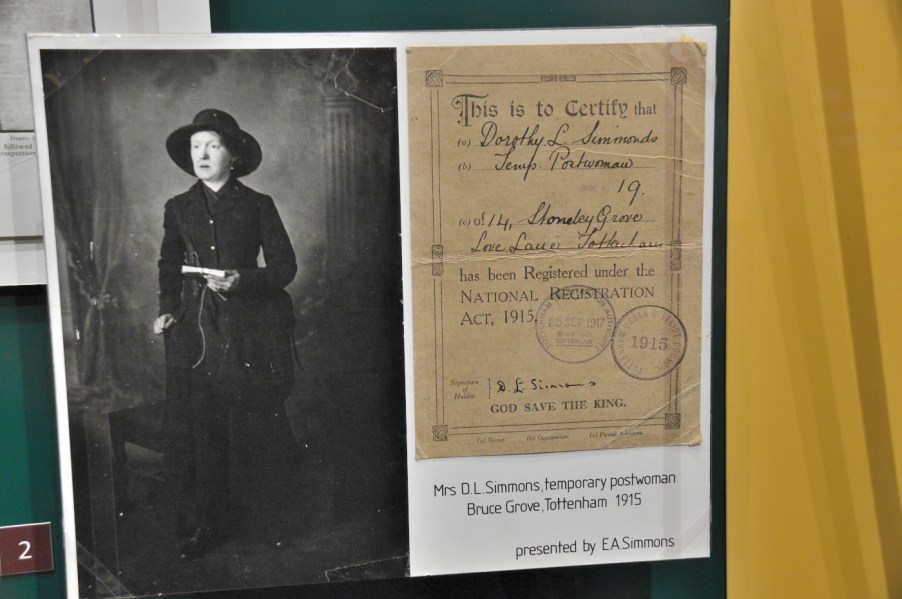 This is to Certify that
(a) Dorothy L. Simmonds
(b) Temp. Postwoman
19.
(c) of 14, Stoneley Grove
Love Lane Tottenham
has been Registered under the
NATIONAL REGISTRATION
ACT, 1915.
TOTTENHAM
25 SEP 1917
TOTTENHAM URBAN DISTRICT COUNCIL
1915
Signature
of
Holder
D. L. Simmons
GOD SAVE THE KING.
(a) Name. (b) Occupation. (c) Postal Address.
Mrs D.L.Simmons, temporary postwoman
Bruce Grove, Tottenham 1915
presented by E.A.Simmons
2
followed